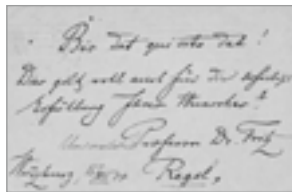 Bis dat qui cito dat!
Das gilt wohl auch für die
Erfüllung Ihres Wunsches!
Professor Dr. Fritz
Würzburg, Regel.